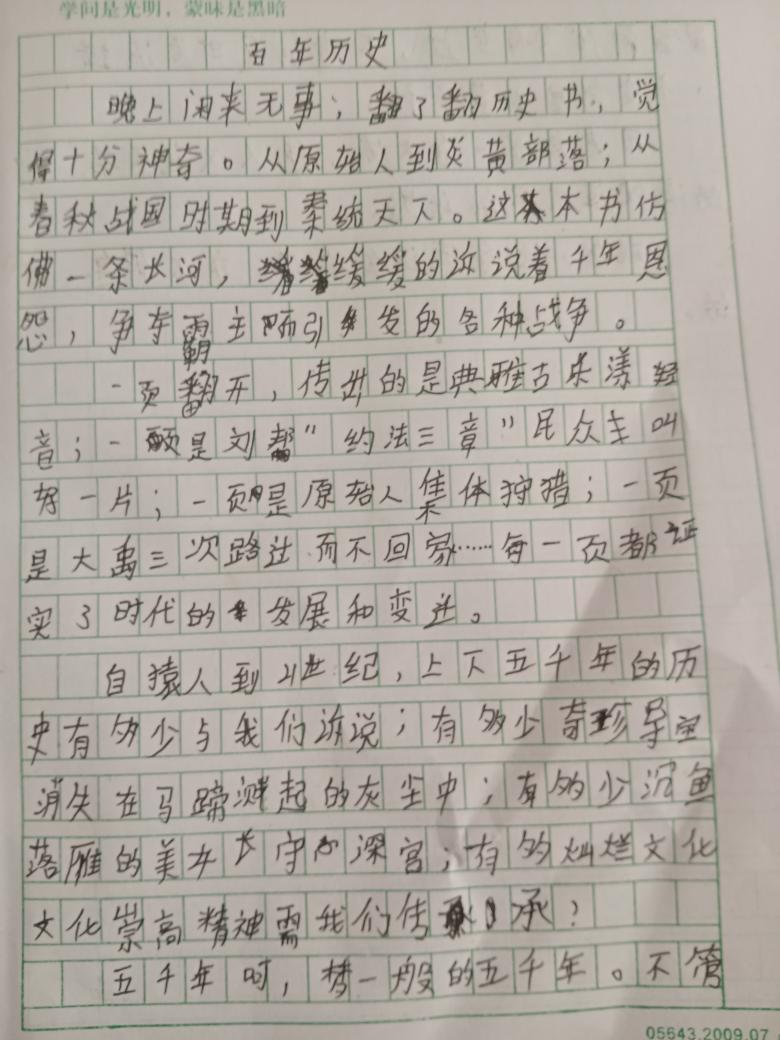 学问是光明，蒙昧是黑暗
百年历史
晚上闲来无事；翻了翻历史书，觉
得十分神奇。从原始人到炎黄部落；从
春秋战国时期到秦统天下。这本书仿
佛一条长河，缓缓的诉说着千年恩
怨，争夺霸主而引发的各种战争。
一页翻开，传出的是典雅古乐漾轻
音；一页是刘帮"约法三章"民众主叫
好一片；一页是原始人集体狩猎；一页
是大禹三次路过而不回家……每一页都证
实了时代的发展和变迁。
自猿人到21世纪，上下五千年的历
史有多少与我们诉说；有多少奇珍异宝
消失在马蹄溅起的灰尘中；有多少沉鱼
落雁的美女长守深宫；有多灿烂文化
文化崇高精神需我们传承？
五千年呵，梦一般的五千年。不管
05543.2009.07